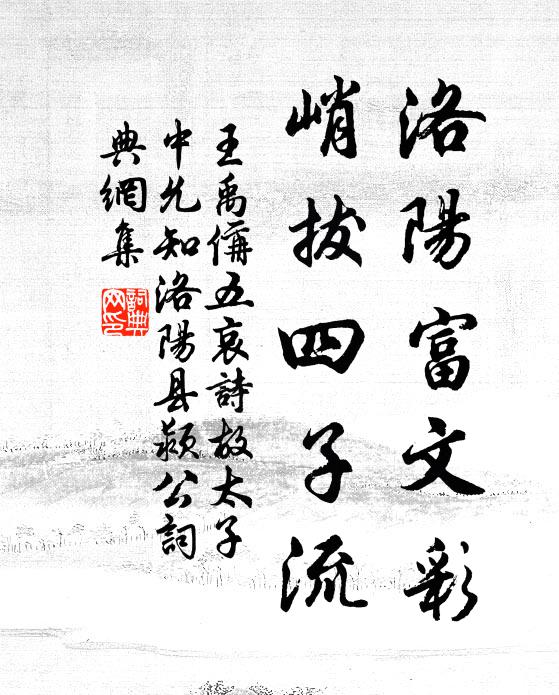 洛陽富文彩
峭拔四子流
王禹偁五哀詩故太子
中允知洛陽县颍公詞
典網集
詞典網印